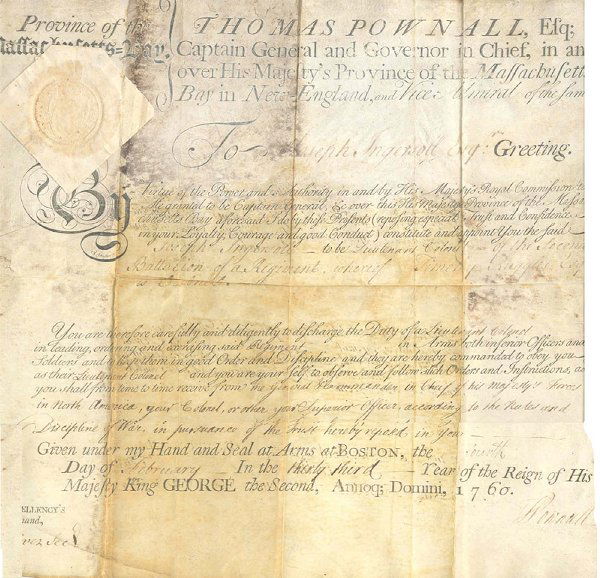 Province of the
Massachusetts=Bay,
THOMAS POWNALL, Esq;
Captain General and Governor in Chief, in an
over His Majesty's Province of the Massachusett
Bay in New-England, and Vice-Admiral of the sam
To Joseph Ingersoll Esqr. Greeting.
By Virtue of the Power and Authority in and by His Majesty's Royal Commission to
Me granted to be Captain General, &c over this His Majesty's Province of the Massa
chusetts Bay aforesaid I do by these Presents (reposing especial Trust and Confidence
in your Loyalty, Courage and good Conduct) constitute and appoint You the said
Joseph Ingersoll to be Lieutenant Colonel of the Second
Battalion of a Regiment, whereof Timothy Ruggles Esq
is Colonel
You are therefore carefully and diligently to discharge the Duty of a Lieutenant Colonel
in leading, ordering and exercising said Regiment in Arms both inferior Officers and
Soldiers and to keep them in good Order and Discipline and they are hereby commanded to obey you
as their Lieutenant Colonel and you are your self to observe and follow such Orders and Instructions, as
you shall from time to time receive from the General & Commander in Chief of his Majesty's Forces
in North America, your Colonel, or other your Superior Officer, according to the Rules and
Discipline of War, in pursuance of the Trust hereby repos'd in You
Given under my Hand and Seal at Arms at BOSTON, the
Day of February In the thirty third Year of the Reign of His
Majesty King GEORGE the Second, Annoq; Domini, 1760.
ELLENCY'S
mand,
Pownall